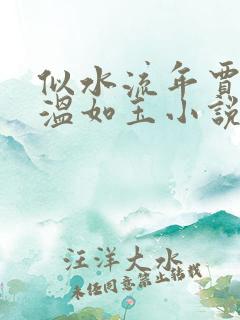 似水流年賈
溫如玉小説
汪洋大水
未任同意禁止转载